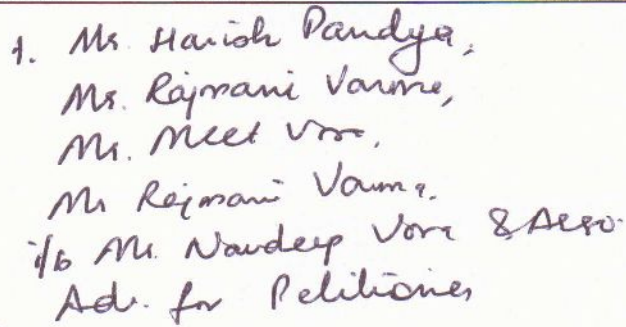 1. Mr. Harish Pandya,
Mr. Rajmani Varma,
Mr. Meet Vora,
Mr Rajmani Varma.
i/b Mr. Navdeep Vora & Asso.
Adv. for Petitioner